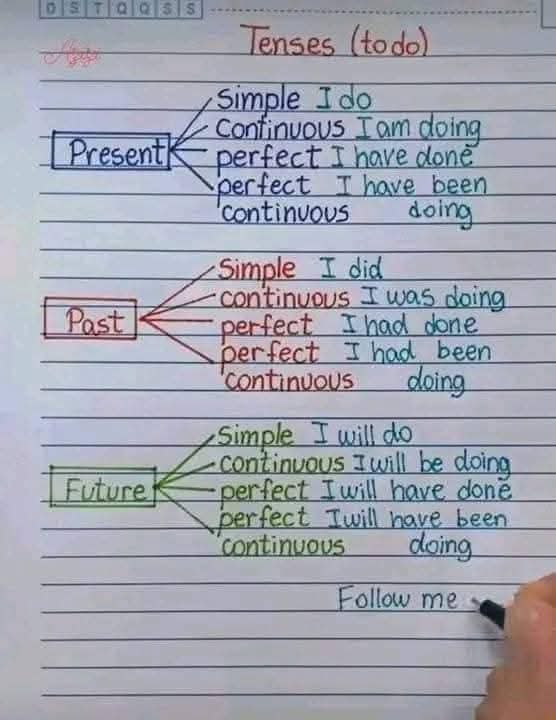 D S T Q Q S S
Tenses (to do)
Simple I do
Continuous I am doing
Present
perfect I have done
perfect I have been
continuous doing
Simple I did
continuous I was doing
Past
perfect I had done
perfect I had been
continuous doing
Simple I will do
continuous I will be doing
Future
perfect I will have done
perfect I will have been
continuous doing
Follow me